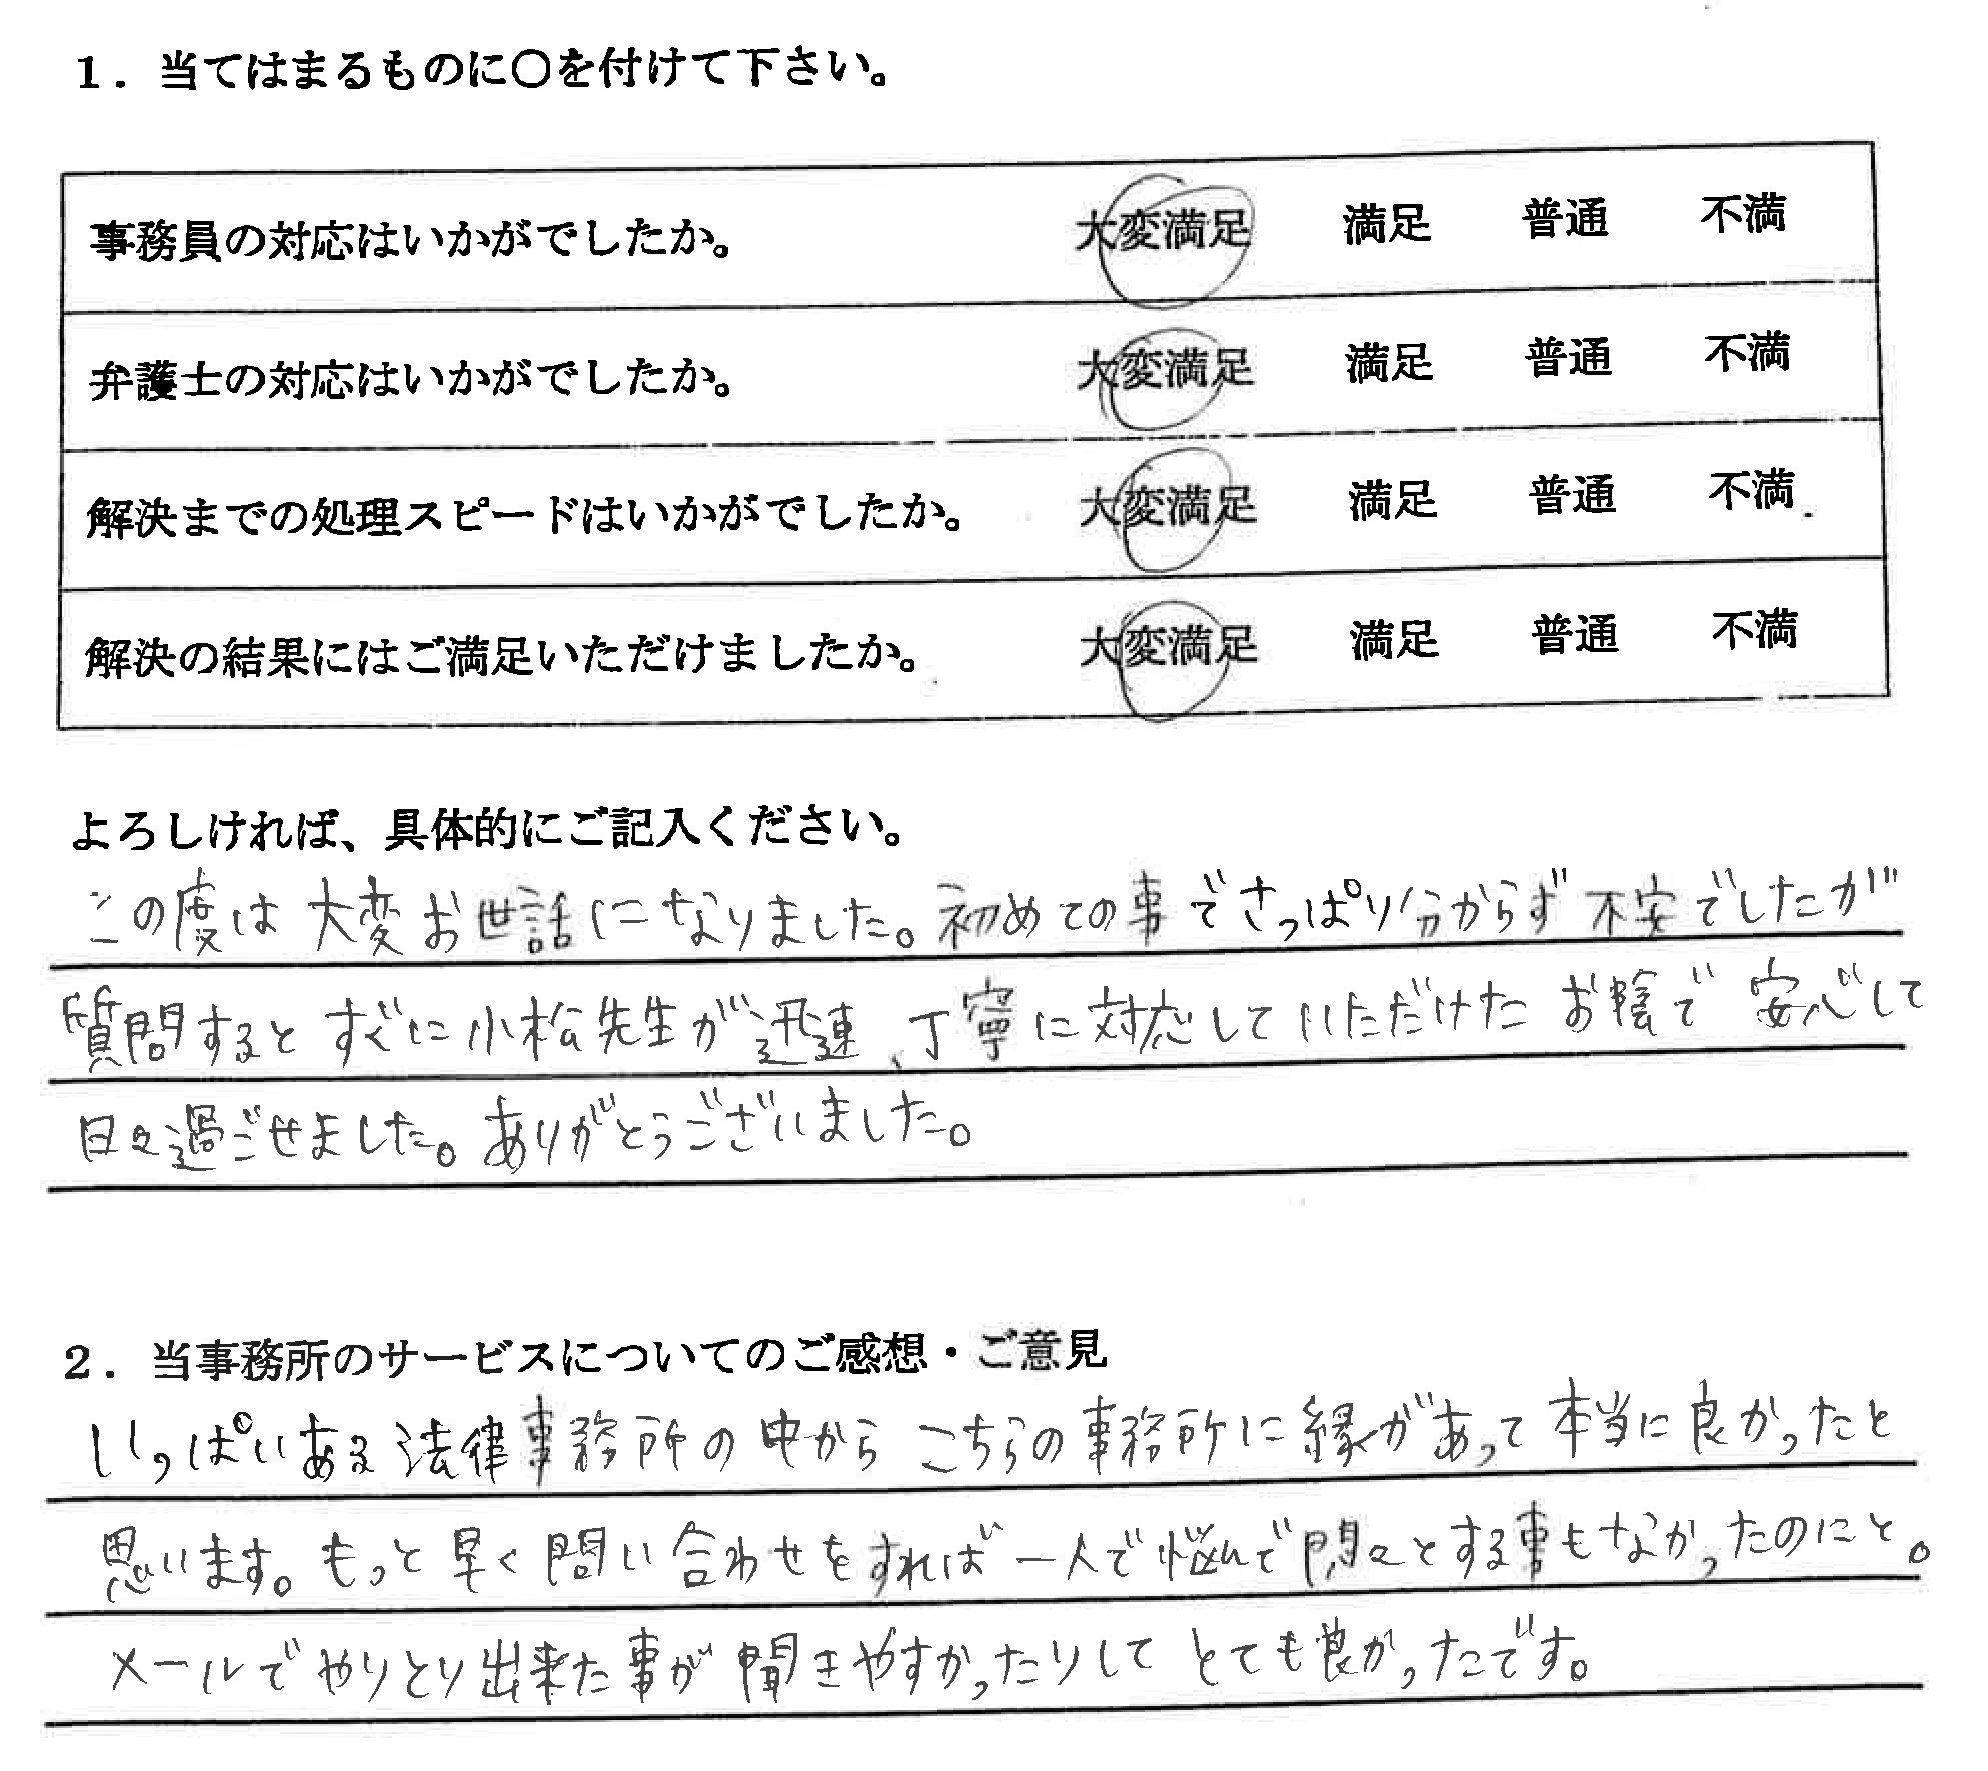 1．当てはまるものに〇を付けて下さい。
事務員の対応はいかがでしたか。 大変満足 満足 普通 不満
弁護士の対応はいかがでしたか。 大変満足 満足 普通 不満
解決までの処理スピードはいかがでしたか。 大変満足 満足 普通 不満
解決の結果にはご満足いただけましたか。 大変満足 満足 普通 不満
よろしければ、具体的にご記入ください。
この度は大変お世話になりました。初めての事でさっぱり分からず不安でしたが
質問するとすぐに小松先生が迅速、丁寧に対応していただけたお陰で安心して
日々過ごせました。ありがとうございました。
2．当事務所のサービスについてのご感想・ご意見
いっぱいある法律事務所の中からこちらの事務所に縁があって本当に良かったと
思います。もっと早く問い合わせをすれば一人で悩んで悶々とする事もなかったのにと。
メールでやりとり出来た事が聞きやすかったりしてとても良かったです。